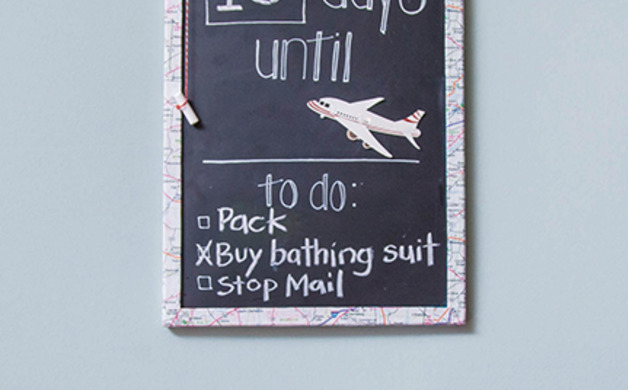 days
until
to do:
Pack
Buy bathing suit
Stop Mail